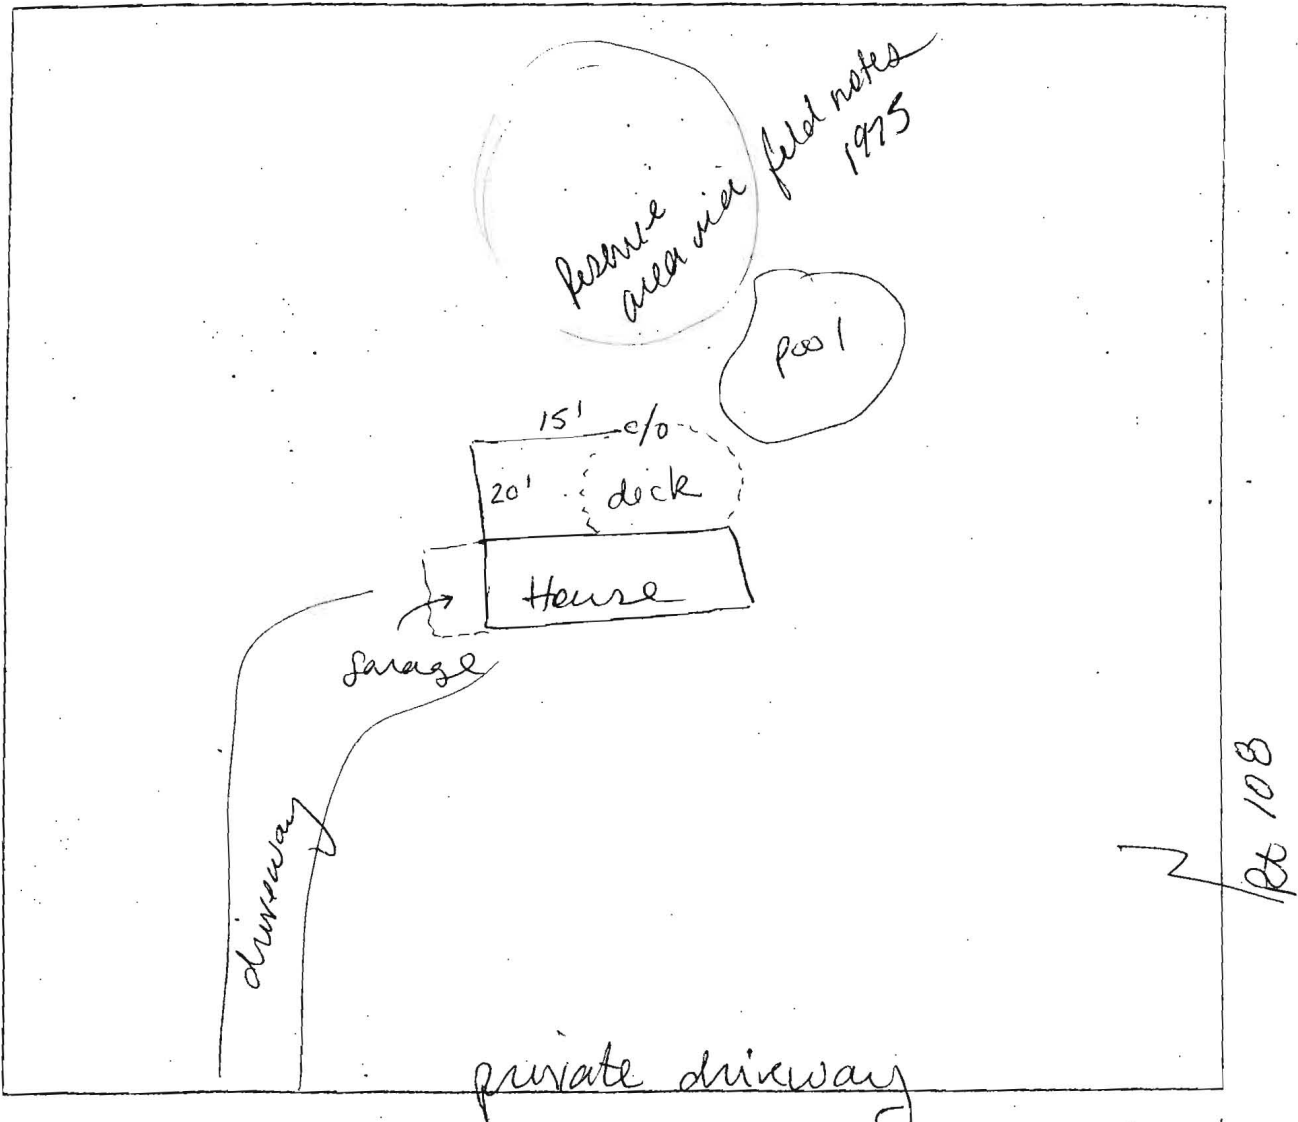 Reserve
area via field notes
1975
pool
15'
c/o
20'
deck
House
garage
driveway
Rt 108
private driveway